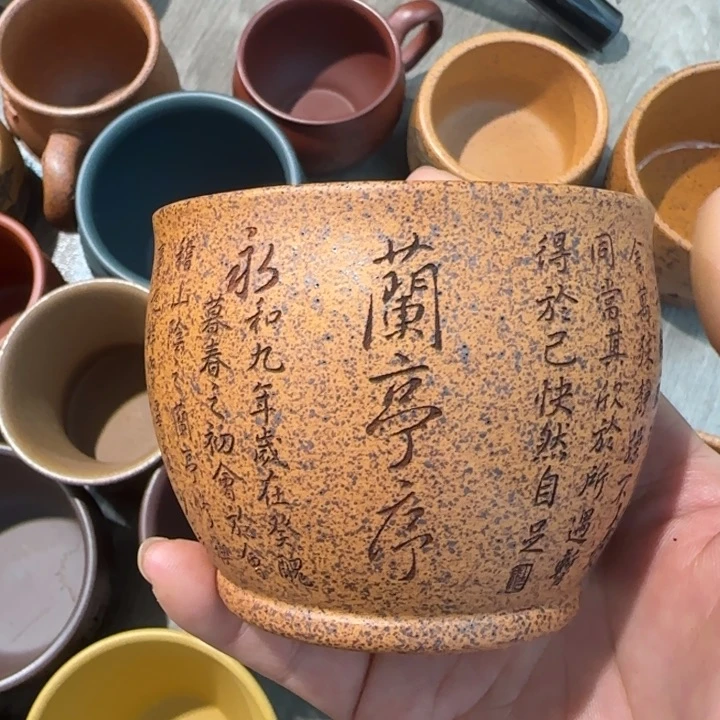 蘭亭序
永和九年歲在癸醜
暮春之初會於會
稽山陰之蘭亭
殊靜躁不
同當其欣於所遇暫
得於己快然自足